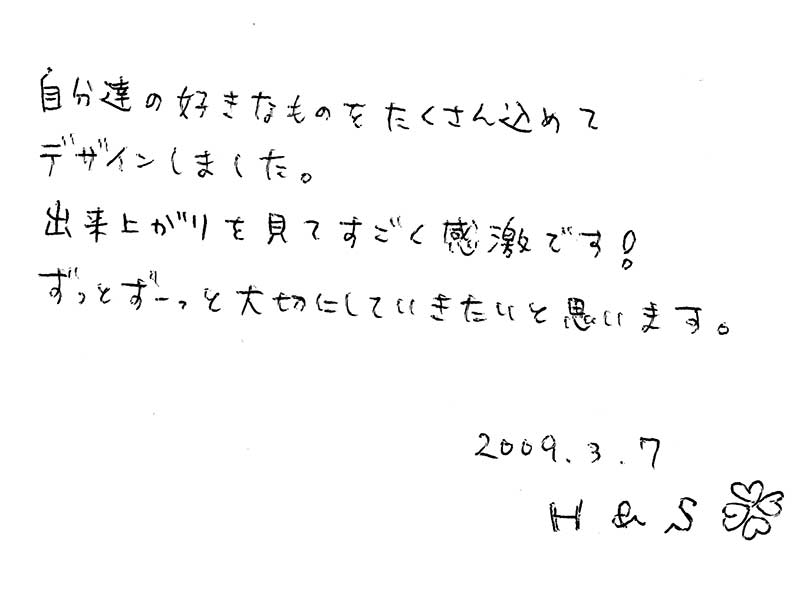 自分達の好きなものをたくさん込めて
デザインしました。
出来上がりを見てすごく感激です!
ずっとずーっと大切にしていきたいと思います。
2009.3.7
H & S